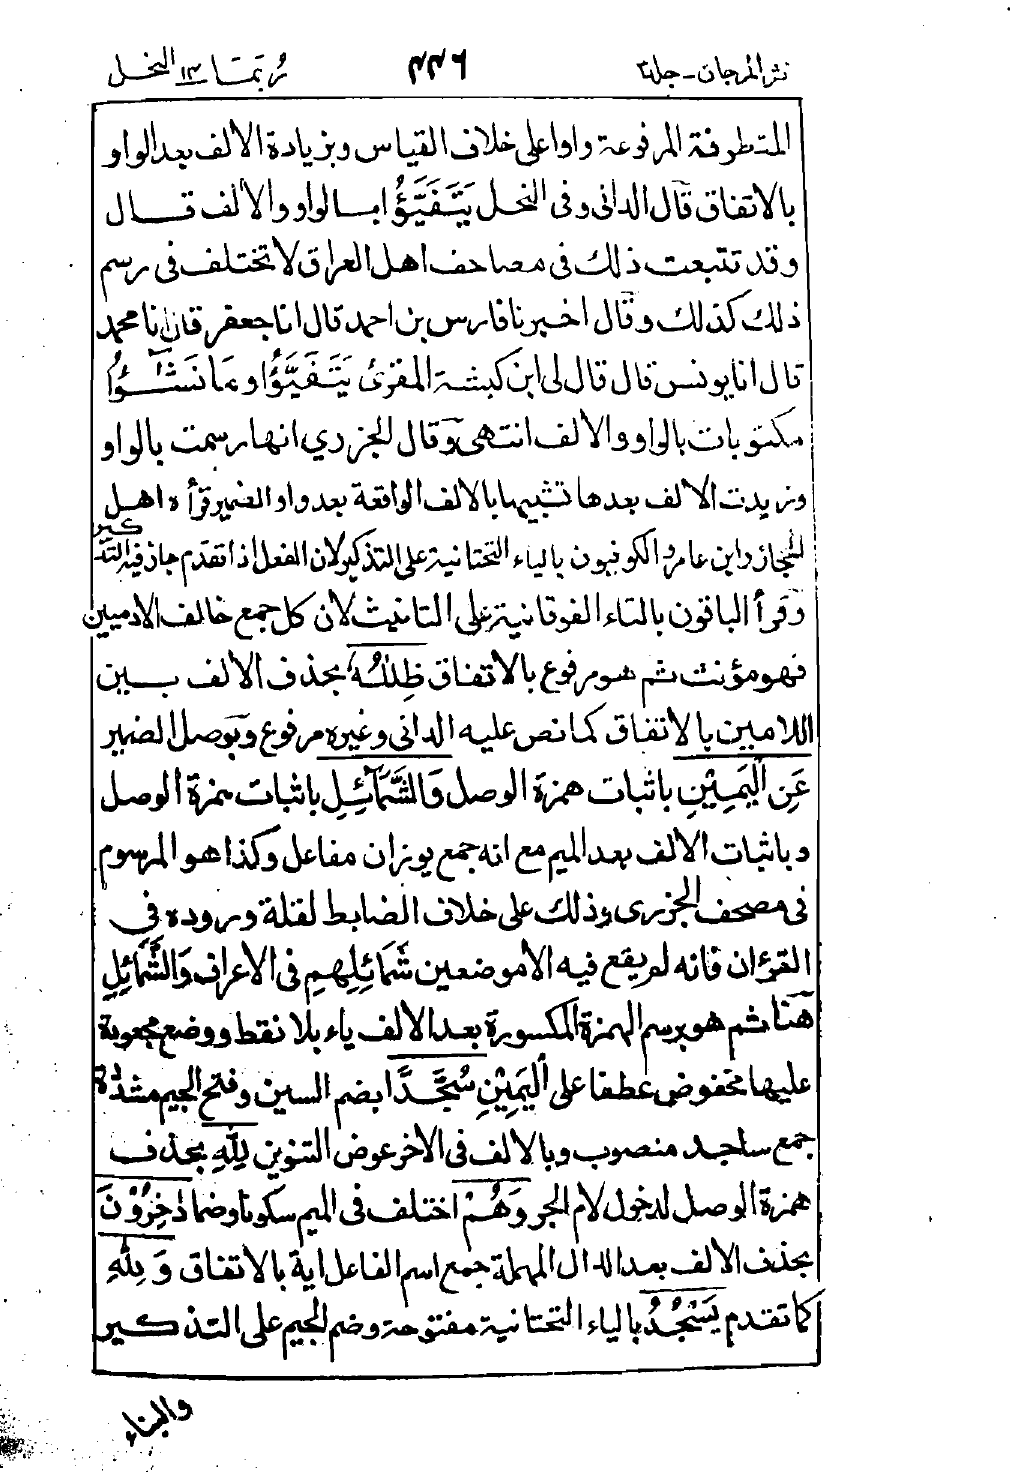 نثر المرجان - جلد٣ ٤٤٦ رُبَمَا ١٤ النحل
المتطرفة المرفوعة واوا على خلاف القياس وبزيادة الالف بعد الواو
بالاتفاق قال الدانى وفى النحل يَتَفَيَّؤُا بالواو والالف قال
وقد تتبعت ذلك فى مصاحف اهل العراق لا تختلف فى رسم
ذلك كذلك وقال اخبرنا فارس بن احمد قال انا جعفر قال انا محمد
قال انا يونس قال قال لى ابن كبشة المقرئ يَتَفَيَّؤُا و مَا نَشَٰٓؤُا
مكتوبات بالواو والالف انتهى وقال الجزري انها رسمت بالواو
وزيدت الالف بعدها تشبيها بالالف الواقعة بعد واو الضمير قرأه اهل
الحجاز وابن عامر والكوفيون بالياء التحتانية على التذكير لان الفعل اذا تقدم جاز فيه التذكير
وقرأ الباقون بالتاء الفوقانية على التانيث لان كل جمع خالف الادميين
فهو مؤنث ثم هو مرفوع بالاتفاق ظِلٰلُهٗ بحذف الالف بين
اللامين بالاتفاق كما نص عليه الدانى وغيره مرفوع وبوصل الضمير
عَنِ الْيَمِيْنِ باثبات همزة الوصل وَالشَّمَآئِلِ باثبات همزة الوصل
وباثبات الالف بعد الميم مع انه جمع يوزان مفاعل وكذا هو المرسوم
فى مصحف الجزرى وذلك على خلاف الضابط لقلة وروده فى
القرءان فانه لم يقع فيه الا موضعين شَمَائِلِهِمِ فى الاعراف وَالشَّمَائِلِ
هٓنا ثم هو برسم الهمزة المكسورة بعد الالف ياء بلا نقط ووضع مجعودة
عليها مخفوض عطفا على الْيَمِيْنِ سُجَّدًا بضم السين وفتح الجيم مشددة
جمع ساجد منصوب وبالالف فى الاخر عوض التنوين لِلّٰهِ بحذف
همزة الوصل لدخول لام الجر وَهُمْ اختلف فى الميم سكونا وضما دٰخِرُوْنَ
بحذف الالف بعد الدال المهملة جمع اسم الفاعل اية بالاتفاق وَلِلّٰهِ
كما تقدم يَسْجُدُ بالياء التحتانية مفتوحة وضم الجيم على التذكير
والبناء